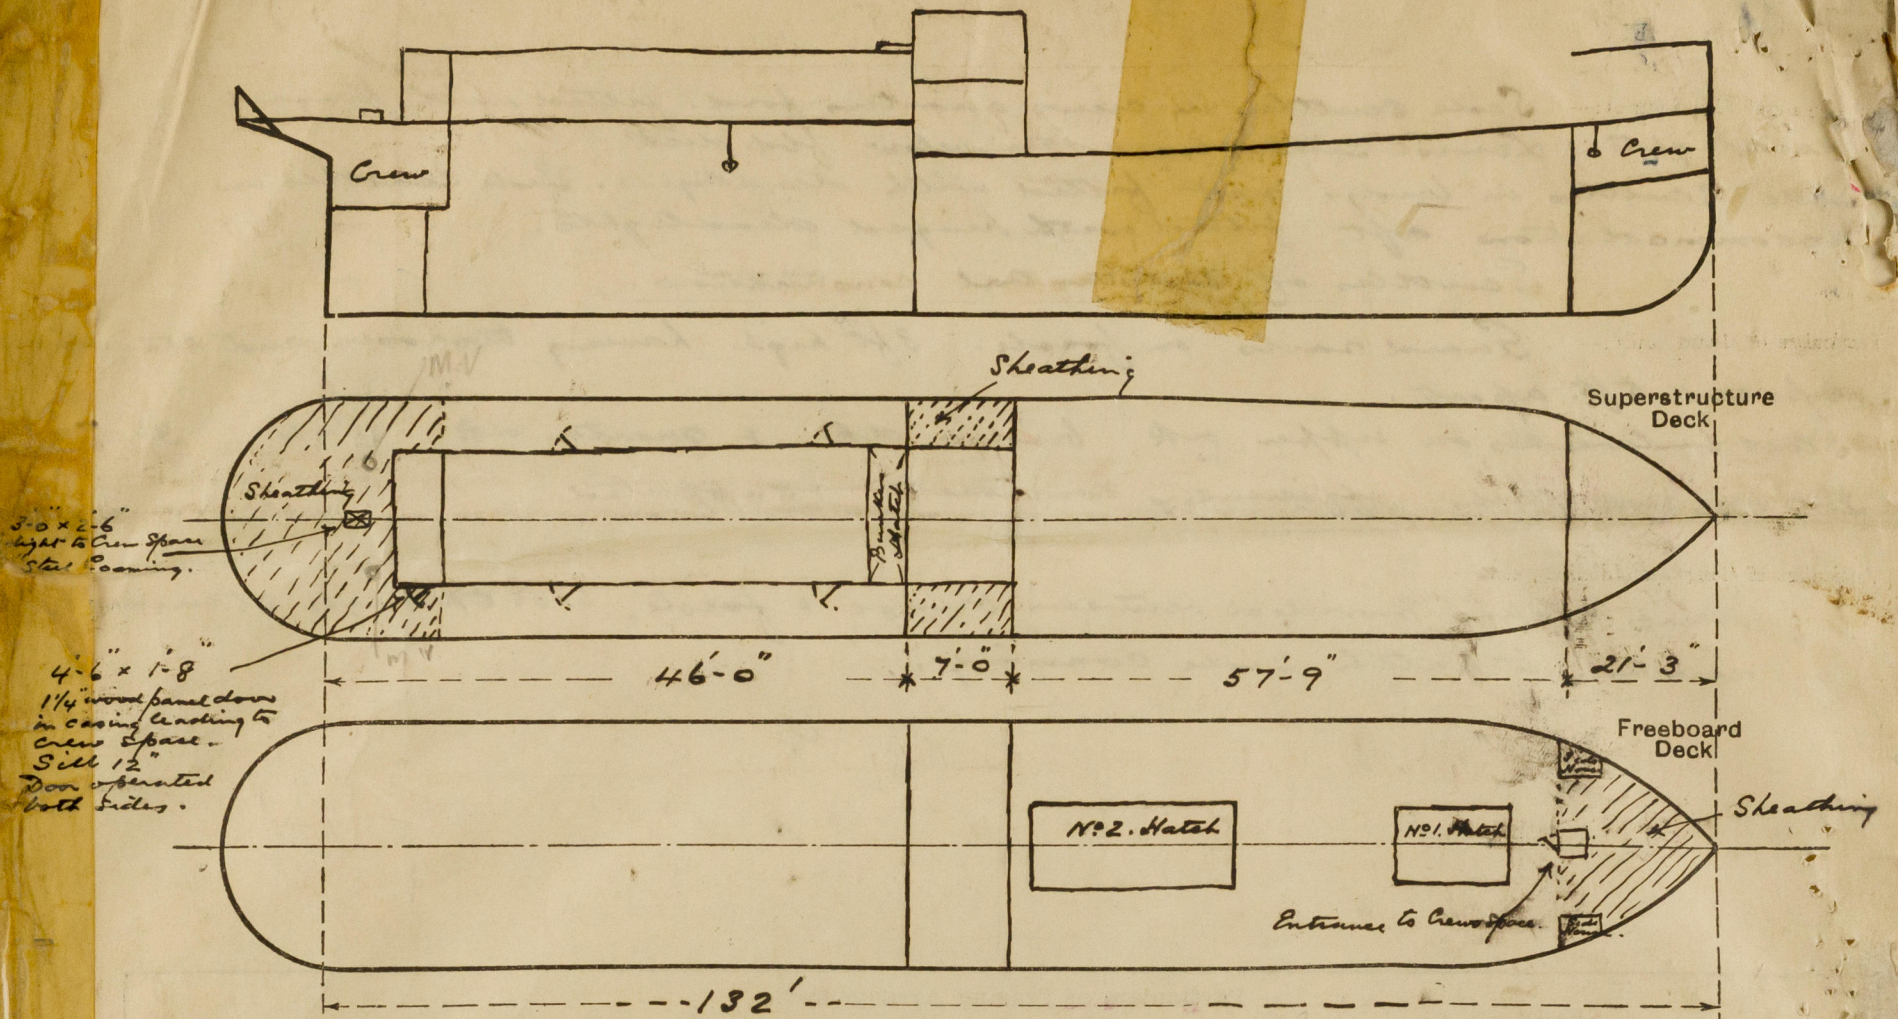 Crew
Crew
M.V
Sheathing
Superstructure
Deck
Sheathing
3'-0" x 2'-6"
light to Crew Space
Steel Coaming.
Bunker
Hatch
4'-6" x 1'-8"
1 1/4" wood panel door
in casing leading to
Crew Space.
Sill 12"
Door operated
both sides.
M V
46'-0"
7'-0"
57'-9"
21'-3"
Freeboard
Deck
Side
House
Nº 2. Hatch
Nº 1. Hatch
Sheathing
Entrance to Crew Space.
Side
House
132'